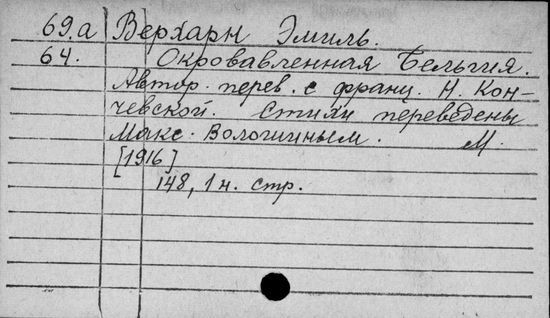 69.а Верхарн Эмиль.
64. Окровавленная Бельгия.
Автор. перев. с франц. Н. Кон-
чевской. Стихи переведены
Макс. Волошиным. М.
[1916]
148, 1 н. стр.